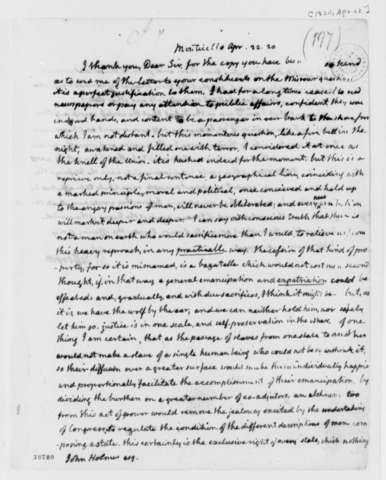 [1820, Apr. 22]
(197)
Monticello Apr. 22. 20
I thank you, Dear Sir, for the copy you have been so kind
as to send me of the letter to your constituents on the Missouri question.
it is a perfect justification to them. I had for a long time ceased to read
newspapers or pay any attention to public affairs, confident they were
in good hands, and content to be a passenger in our bark to the shore from
which I am not distant. but this momentous question, like a fire bell in the
night, awakened and filled me with terror. I considered it at once as
the knell of the Union. it is hushed indeed for the moment. but this is a
reprieve only, not a final sentence. a geographical line, coinciding with
a marked principle, moral and political, once conceived and held up
to the angry passions of men, will never be obliterated; and every new irritation
will mark it deeper and deeper. I can say with conscious truth that there is
not a man on earth who would sacrifice more than I would, to relieve us from
this heavy reproach, in any practicable way. the cession of that kind of pro-
perty, for so it is misnamed, is a bagatelle which would not cost me a second
thought, if, in that way, a general emancipation and expatriation could be
effected: and, gradually, and with due sacrifices, I think it might be. but, as
it is, we have the wolf by the ear, and we can neither hold him, nor safely
let him go. justice is in one scale, and self-preservation in the other. of one
thing I am certain, that as the passage of slaves from one state to another
would not make a slave of a single human being who would not be so without it,
so their diffusion over a greater surface would make them individually happier
and proportionally facilitate the accomplishment of their emancipation, by
dividing the burthen on a greater number of co-adjutors. an abstinence too
from this act of power would remove the jealousy excited by the undertaking
of Congress, to regulate the condition of the different descriptions of men com-
posing a state. this certainly is the exclusive right of every state, which nothing
John Holmes esq.